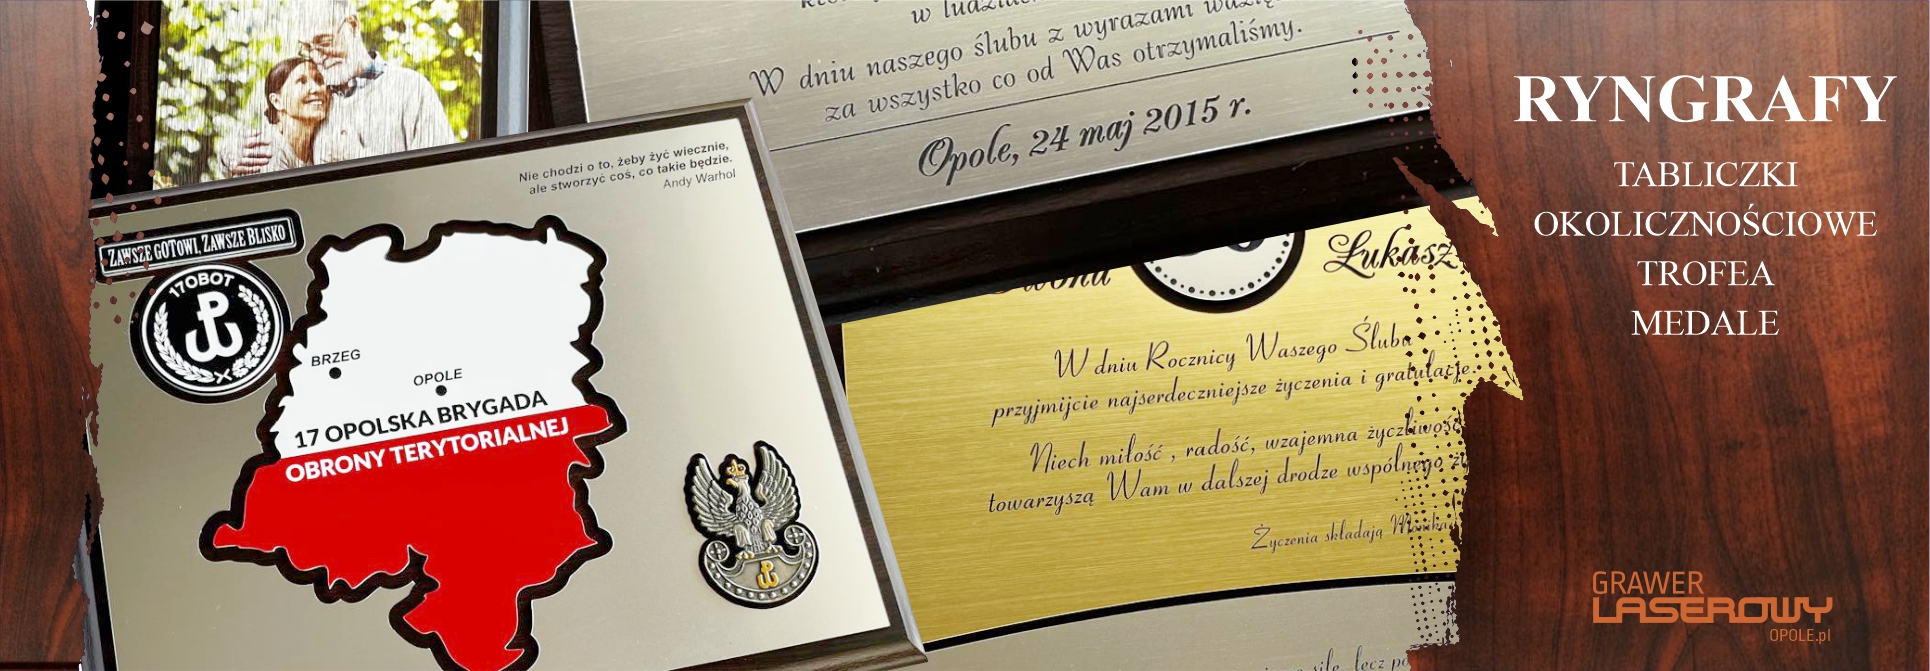 w ludziach
W dniu naszego ślubu z wyrazami
za wszystko co od Was otrzymaliśmy.
Opole, 24 maj 2015 r.
Nie chodzi o to, żeby żyć wiecznie,
ale stworzyć coś, co takie będzie.
Andy Warhol
ZAWSZE GOTOWI, ZAWSZE BLISKO
17OBOT
BRZEG
OPOLE
17 OPOLSKA BRYGADA
OBRONY TERYTORIALNEJ
Łukasz
W dniu Rocznicy Waszego Ślubu
przyjmijcie najserdeczniejsze życzenia i gratulacje.
Niech miłość , radość, wzajemna życzliwość
towarzyszą Wam w dalszej drodze wspólnego
Życzenia składają
lecz
RYNGRAFY
TABLICZKI
OKOLICZNOŚCIOWE
TROFEA
MEDALE
GRAWER
LASEROWY
OPOLE.pl